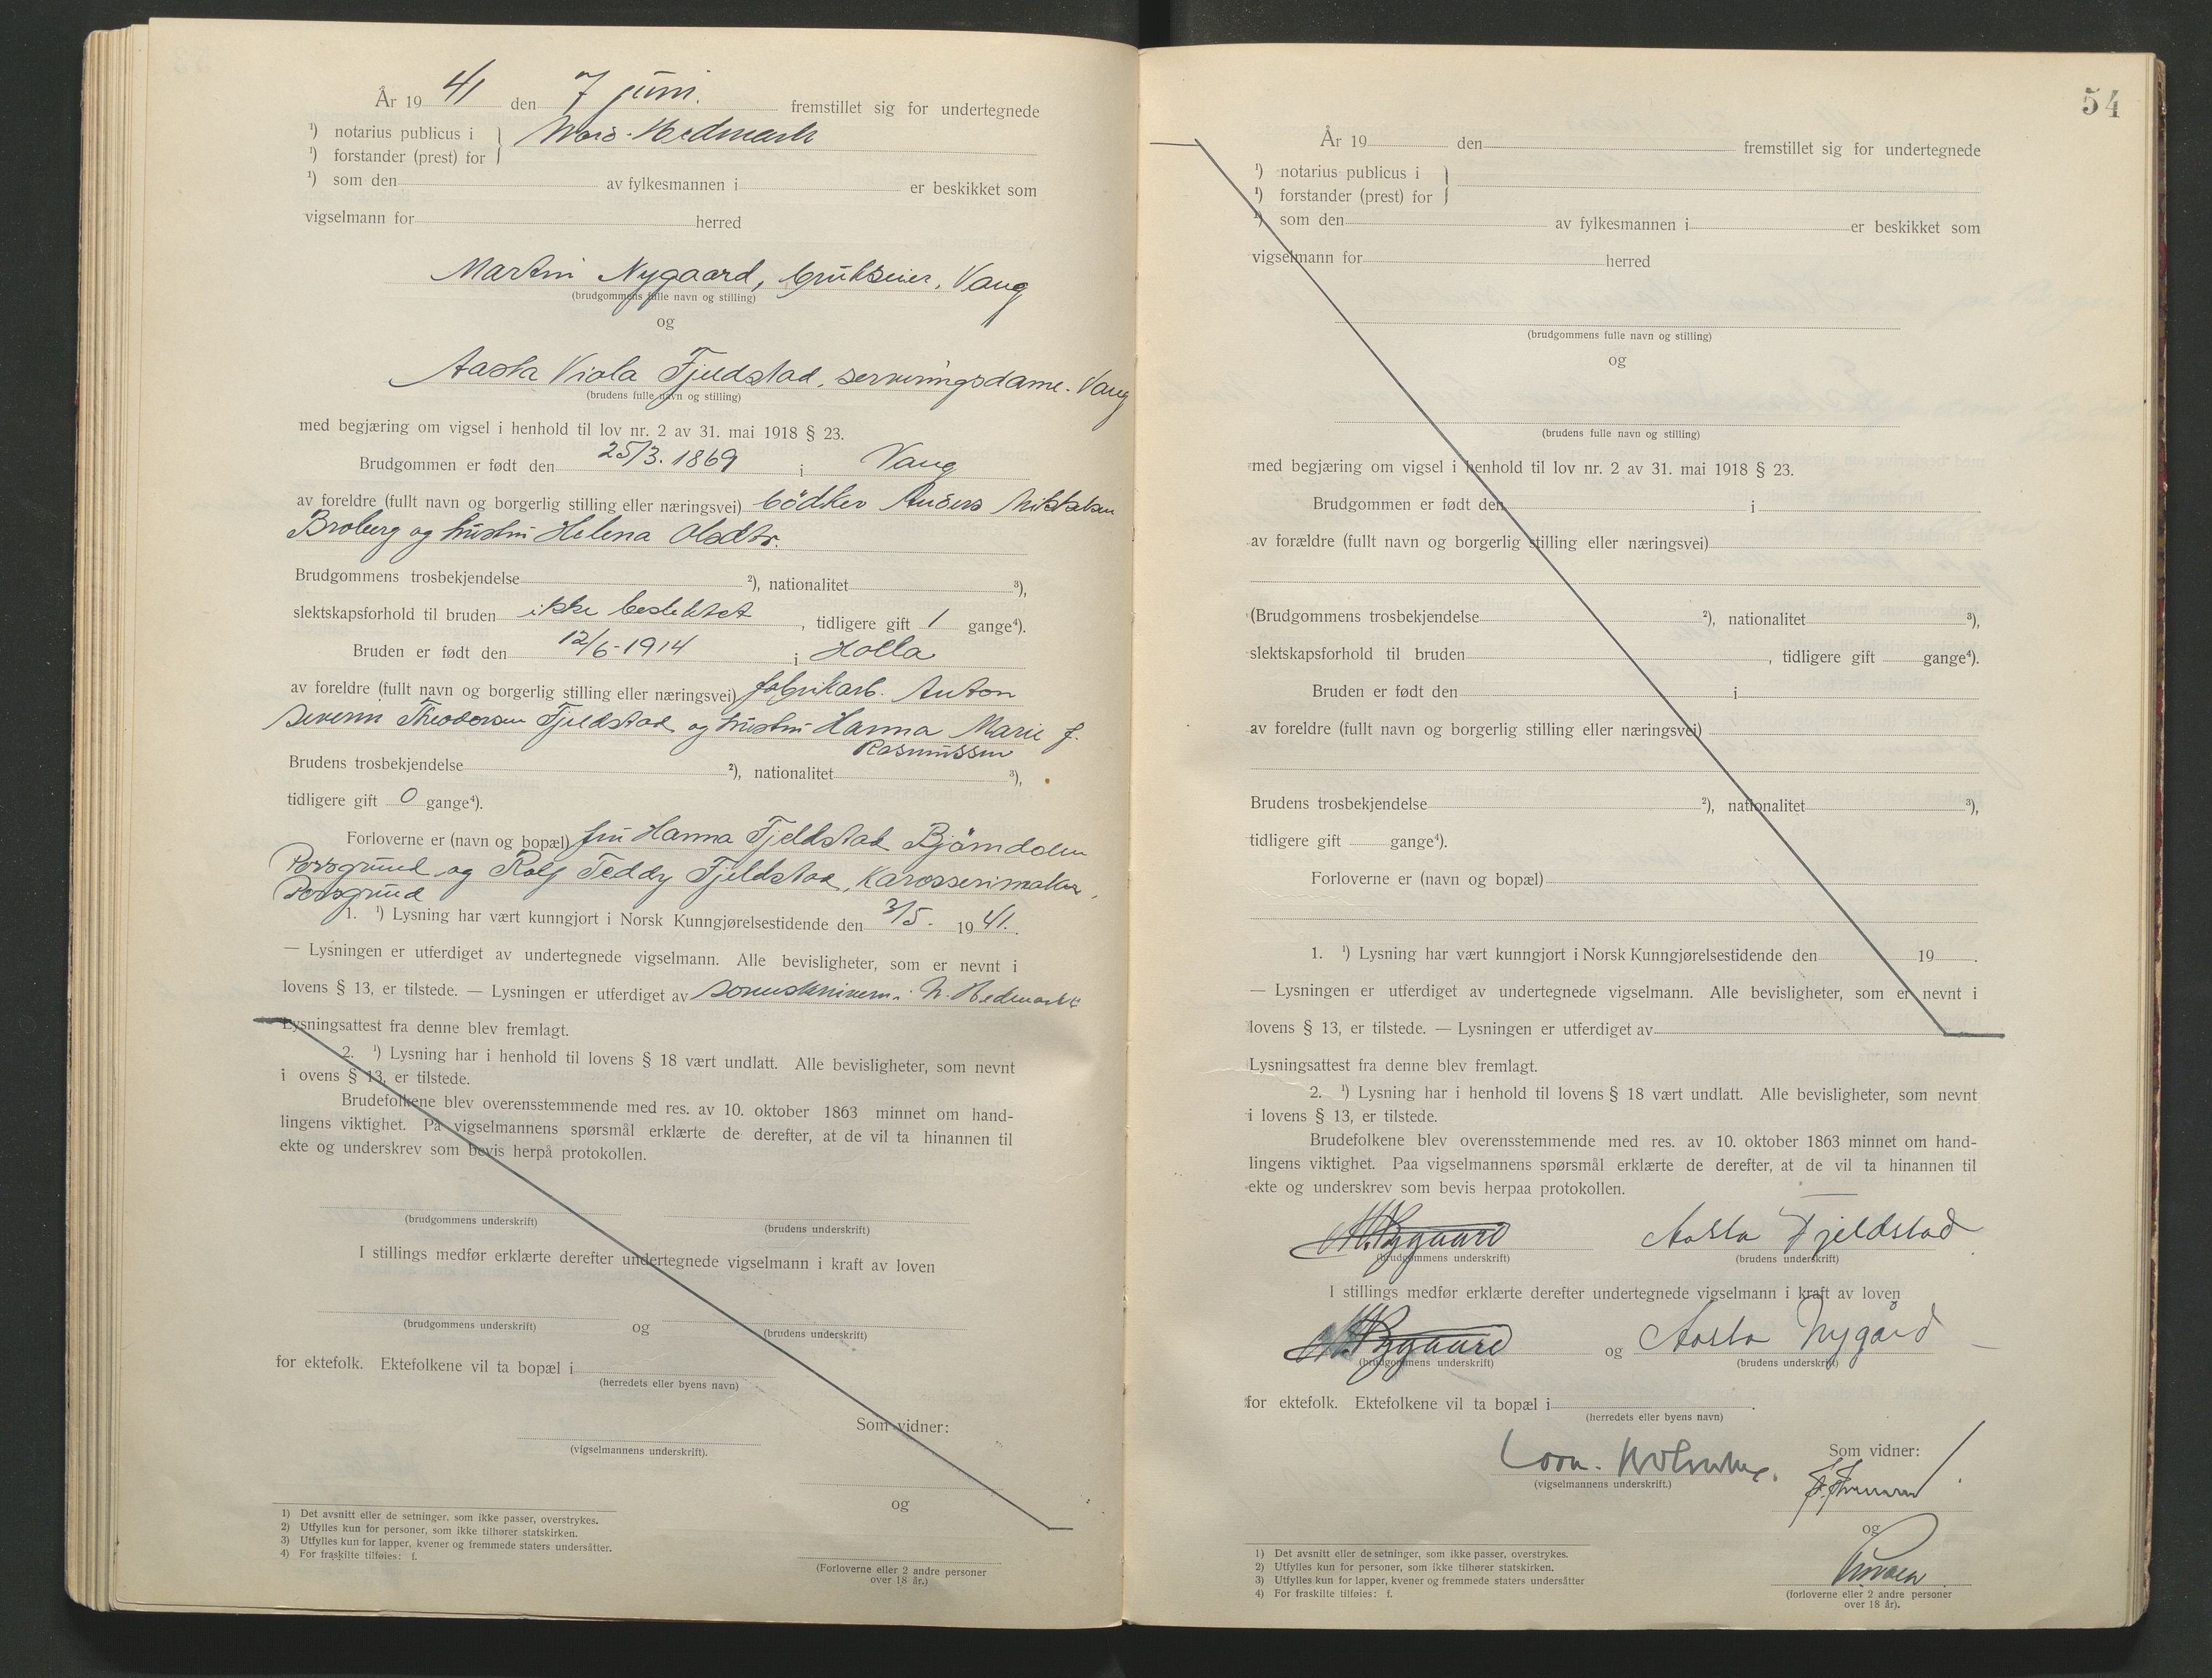 År 1941 den 7 juni. fremstillet sig for undertegnede
¹) notarius publicus i } Nord-Hedmark
¹) forstander (prest) for
¹) som den av fylkesmannen i er beskikket som
vigselmann for herred
Martin Nygaard, brukseier, Vang
(brudgommens fulle navn og stilling)
og
Aasta Viola Fjeldstad, serveringsdame. Vang
(brudens fulle navn og stilling)
med begjæring om vigsel i henhold til lov nr. 2 av 31. mai 1918 § 23.
Brudgommen er født den 25/3. 1869 i Vang
av foreldre (fullt navn og borgerlig stilling eller næringsvei) bödker Anders Mikkelsen
Broberg og hustru Helena Olsdtr.
Brudgommens trosbekjendelse ²), nationalitet ³),
slektskapsforhold til bruden ikke beslektet, tidligere gift 1 gange⁴).
Bruden er født den 12/6-1914 i Holla
av foreldre (fullt navn og borgerlig stilling eller næringsvei) fabrikarb. Anton
Severin Theodorsen Fjeldstad og hustru Hanna Marie f.
Rasmussen
Brudens trosbekjendelse ²), nationalitet ³),
tidligere gift 0 gange⁴).
Forloverne er (navn og bopæl) fru Hanna Fjeldstad Bjørndalen
Porsgrund og Rolf Teddy Fjeldstad, karosserimaker,
Porsgrund
1. ¹) Lysning har vært kunngjort i Norsk Kunngjørelsestidende den 3/5. 1941.
— Lysningen er utferdiget av undertegnede vigselmann. Alle bevisligheter, som er nevnt i
lovens § 13, er tilstede. — Lysningen er utferdiget av sorenskriveren i N. Hedmark
Lysningsattest fra denne blev fremlagt.
2. ¹) Lysning har i henhold til lovens § 18 vært undlatt. Alle bevisligheter, som nevnt
i ovens § 13, er tilstede.
Brudefolkene blev overensstemmende med res. av 10. oktober 1863 minnet om hand-
lingens viktighet. På vigselmannens spørsmål erklærte de derefter, at de vil ta hinannen til
ekte og underskrev som bevis herpå protokollen.
(brudgommens underskrift) (brudens underskrift)
I stillings medfør erklærte derefter undertegnede vigselmann i kraft av loven
og
(brudgommens underskrift) (brudens underskrift)
for ektefolk. Ektefolkene vil ta bopæl i
(herredets eller byens navn)
Som vidner:
(vigselmannens underskrift).
og
1) Det avsnitt eller de setninger, som ikke passer, overstrykes.
2) Utfylles kun for personer, som ikke tilhører statskirken.
3) Utfylles kun for lapper, kvener og fremmede staters undersåtter.
4) For fraskilte tilføies: f.
(Forloverne eller 2 andre personer
over 18 år.)
54
År 19 den fremstillet sig for undertegnede
¹) notarius publicus i }
¹) forstander (prest) for
¹) som den av fylkesmannen i er beskikket som
vigselmann for herred
(brudgommens fulle navn og stilling)
og
(brudens fulle navn og stilling)
med begjæring om vigsel i henhold til lov nr. 2 av 31. mai 1918 § 23.
Brudgommen er født den i
av forældre (fullt navn og borgerlig stilling eller næringsvei)
(Brudgommens trosbekjendelse ²), nationalitet ³),
slektskapsforhold til bruden, tidligere gift gange⁴).
Bruden er født den i
av foreldre (fullt navn og borgerlig stilling eller næringsvei)
Brudens trosbekjendelse ²), nationalitet ³),
tidligere gift gange⁴).
Forloverne er (navn og bopæl)
1. ¹) Lysning har vært kunngjort i Norsk Kunngjørelsestidende den 19.
— Lysningen er utferdiget av undertegnede vigselmann. Alle bevisligheter, som er nevnt i
lovens § 13, er tilstede. — Lysningen er utferdiget av
Lysningsattest fra denne blev fremlagt.
2. ¹) Lysning har i henhold til lovens § 18 vært undlatt. Alle bevisligheter, som nevnt
i lovens § 13, er tilstede.
Brudefolkene blev overensstemmende med res. av 10. oktober 1863 minnet om hand-
lingens viktighet. Paa vigselmannens spørsmål erklærte de derefter, at de vil ta hinannen til
ekte og underskrev som bevis herpaa protokollen.
M. Nygaard Aasta Fjeldstad
(brudgommens underskrift) (brudens underskrift)
I stillings medfør erklærte derefter undertegnede vigselmann i kraft av loven
M. Nygaard og Aasta Nygård
(brudgommens underskrift) (brudens underskrift)
for ektefolk. Ektefolkene vil ta bopæl i.
(herredets eller byens navn)
Som vidner:
(vigselmannens underskrift.)
og
1) Det avsnitt eller de setninger, som ikke passer, overstrykes.
2) Utfylles kun for personer, som ikke tilhører statskirken.
3) Utfylles kun for lapper, kvener og fremmede staters undersåtter
4) For fraskilte tilføies: f.
(forloverne eller 2 andre personer
over 18 år).